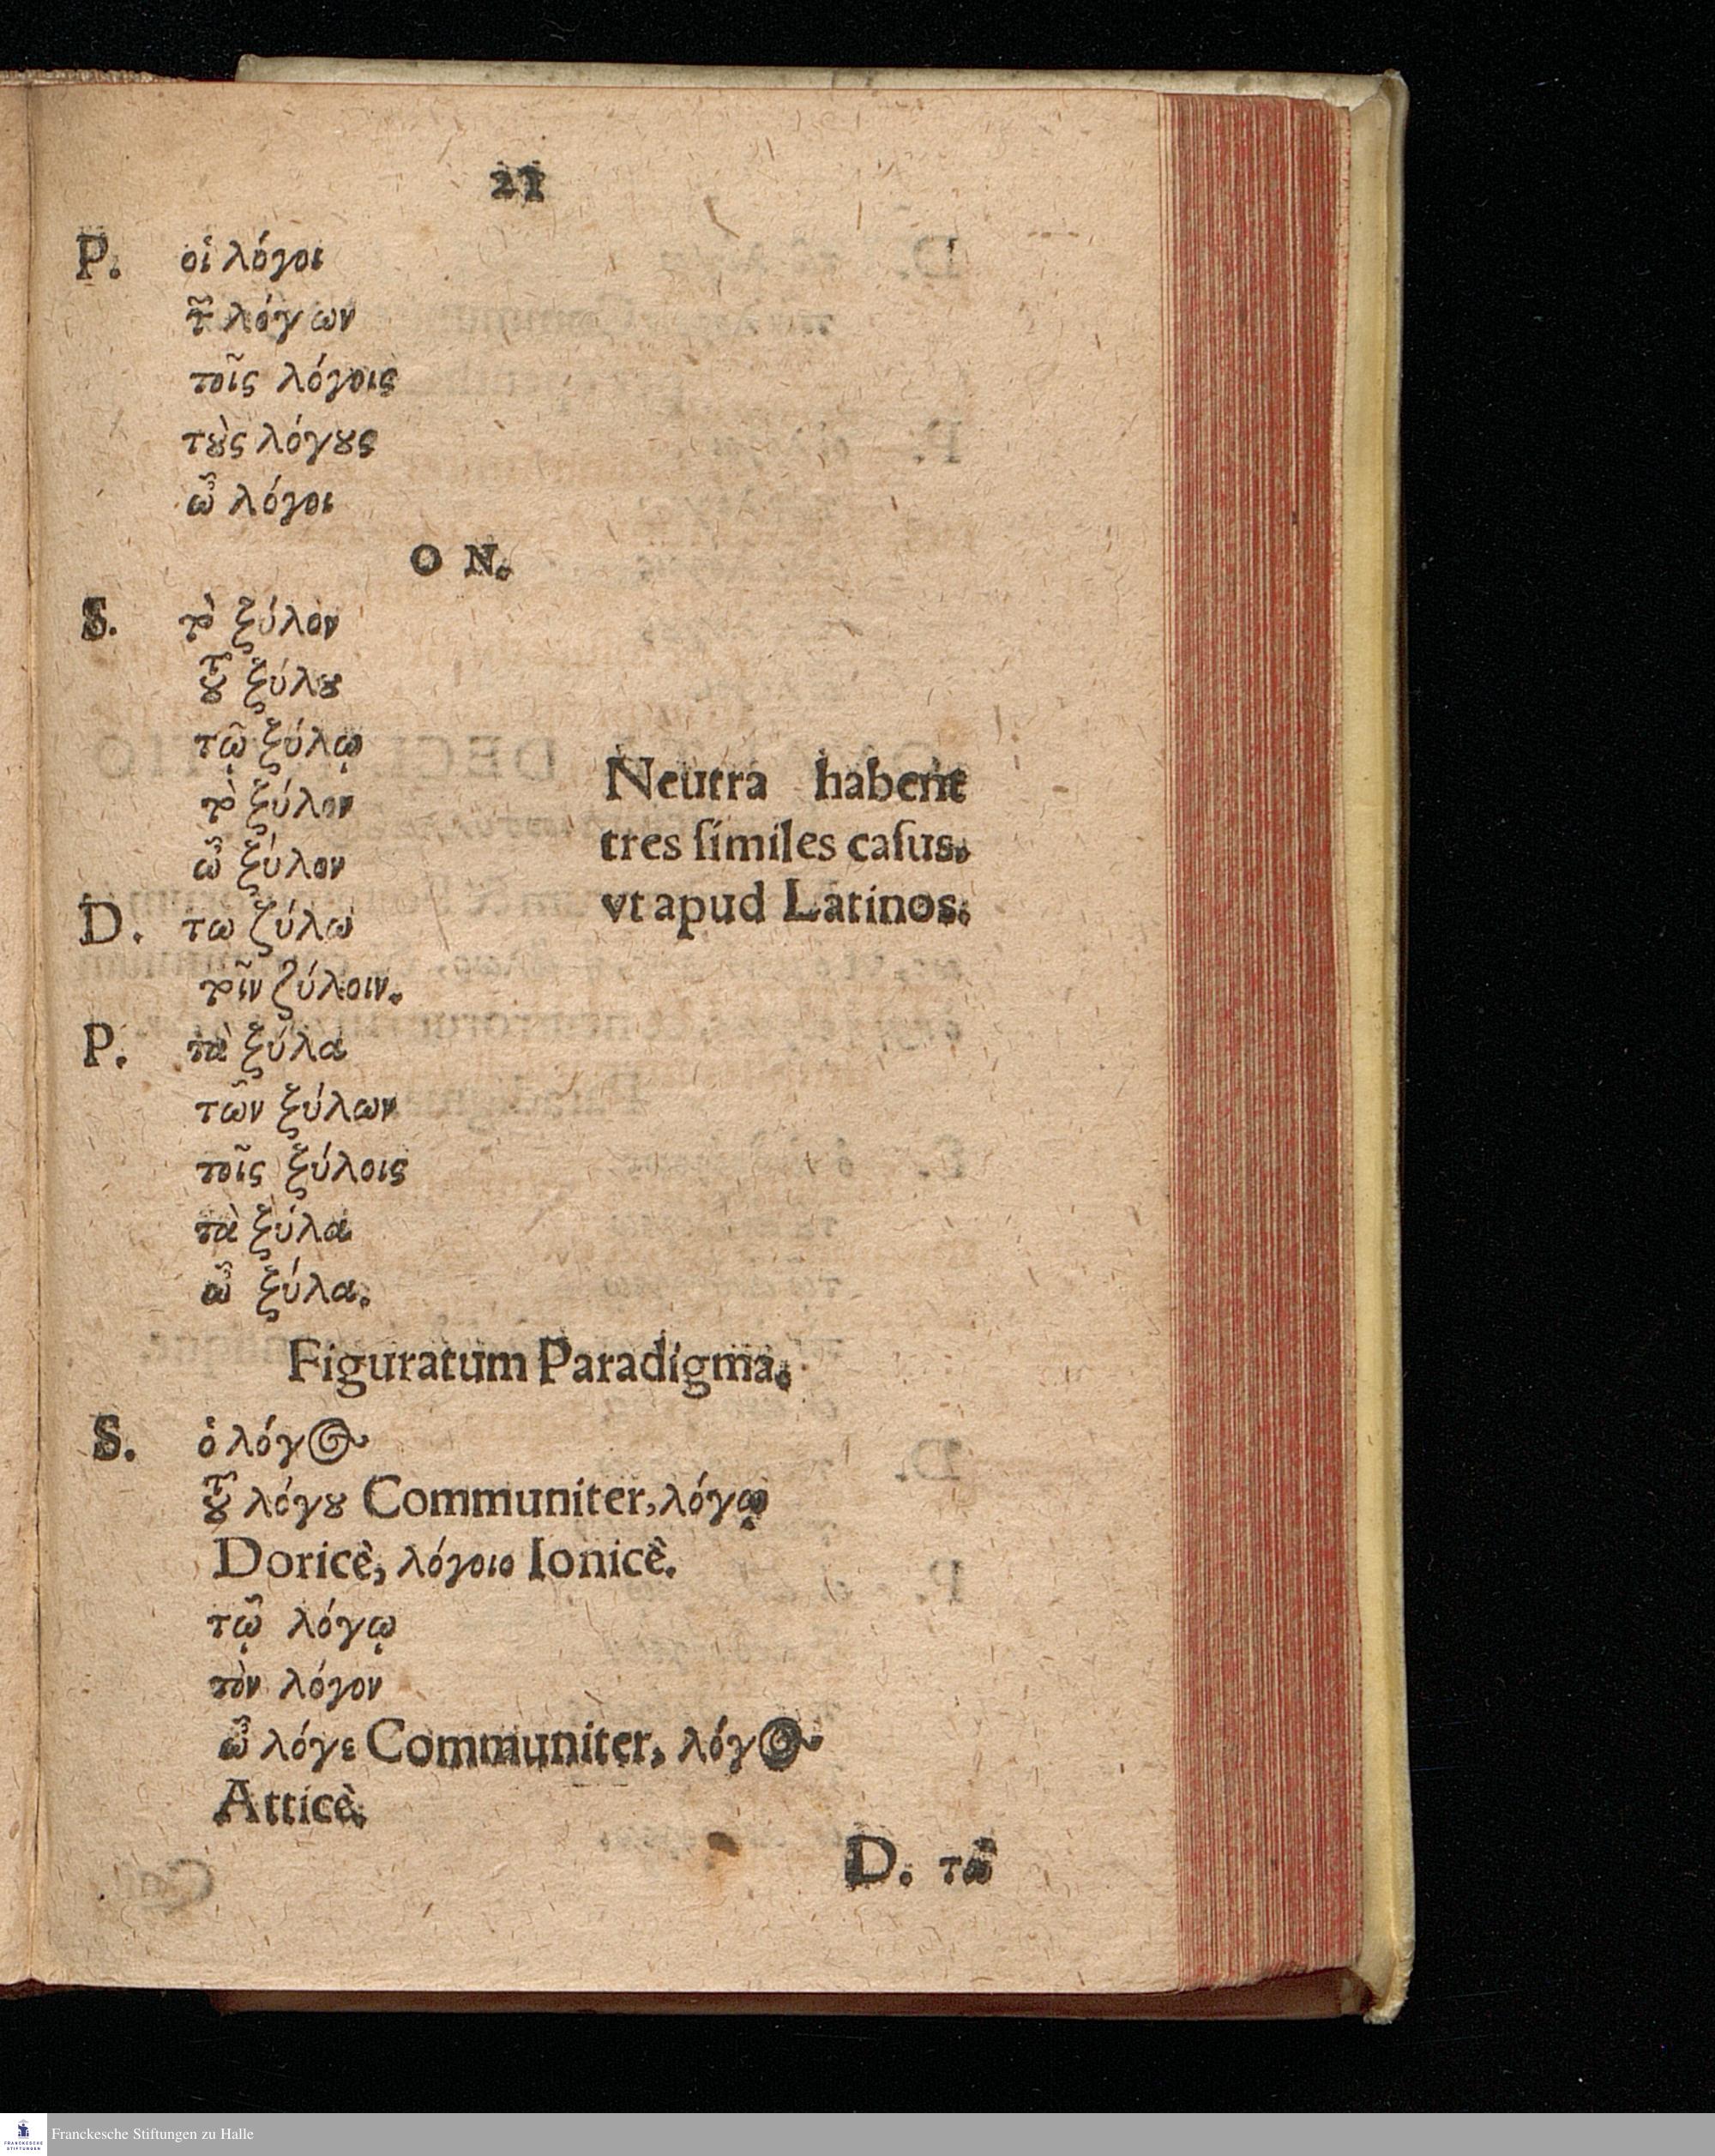 21
P. οἱ λόγοι
τῶν λόγων
τοῖς λόγοις
τοὺς λόγους
ὦ λόγοι
O N.
S. τὸ ξύλον
τοῦ ξύλου
τῷ ξύλῳ
τὸ ξύλον
ὦ ξύλον
D. τω ξύλω
τοῖν ξύλοιν.
P. τὰ ξύλα
τῶν ξύλων
τοῖς ξύλοις
τὰ ξύλα
ὦ ξύλα.
Neutra habent
tres ſimiles caſus,
vt apud Latinos.
Figuratum Paradigma.
S. ὁ λόγος
τοῦ λόγου Communiter, λόγῳ
Doricè, λόγοιο Ionicè.
τῷ λόγῳ
τὸν λόγον
ὦ λόγε Communiter, λόγος
Atticè.
D. τῶ
Franckesche Stiftungen zu Halle
FRANCKESCHE
STIFTUNGEN